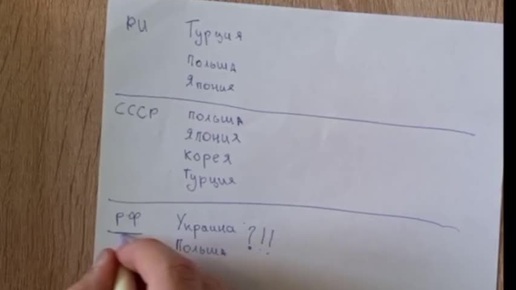 РИ Турция
Польша
Япония
СССР Польша
Япония
Корея
Турция
РФ Украина ?!!
Польша